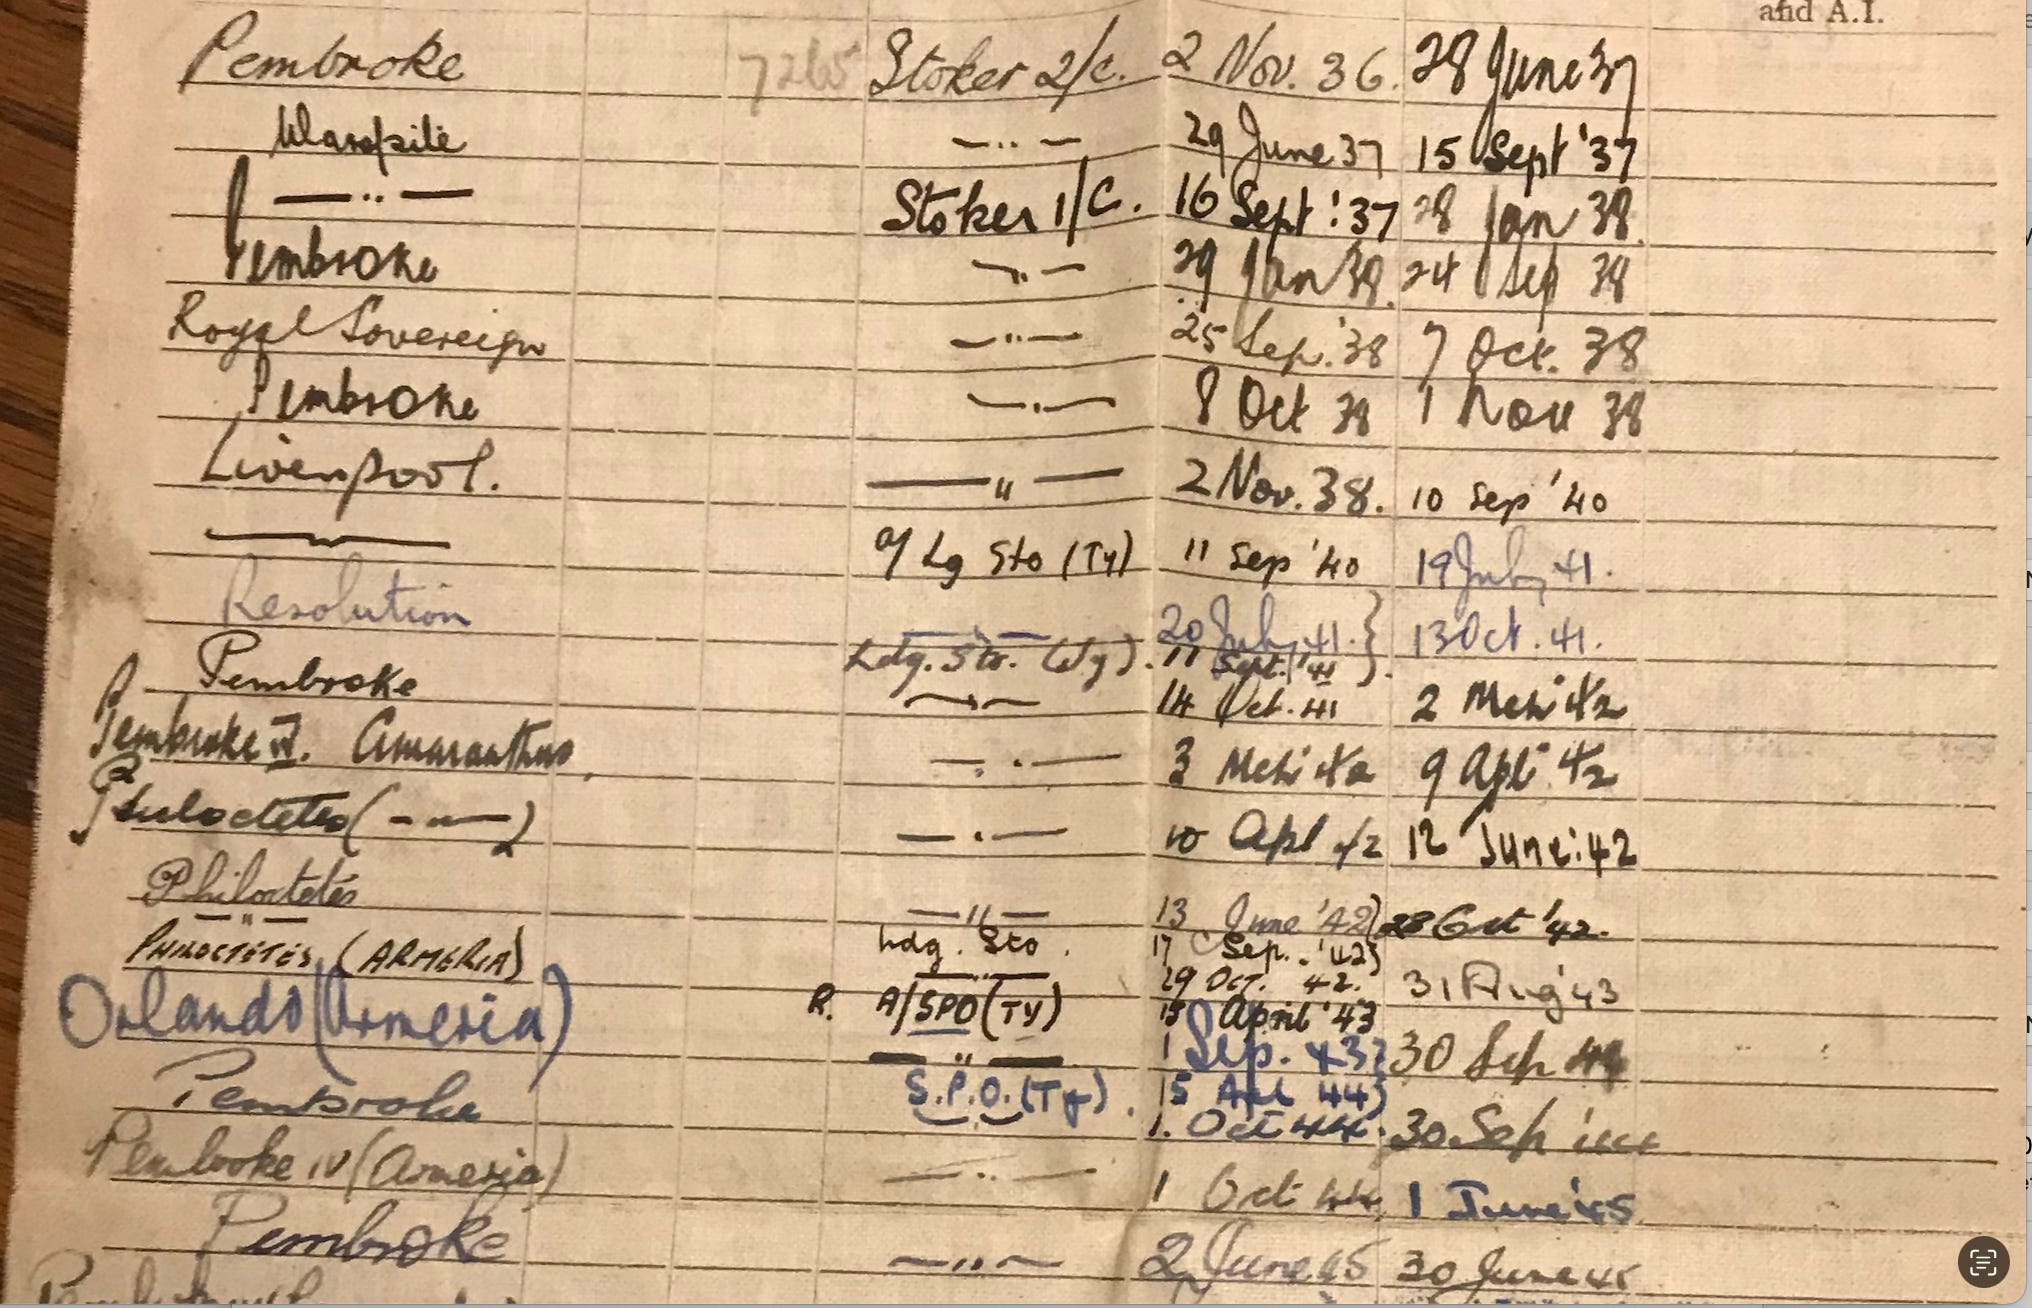 and A.I.
Pembroke 7265 Stoker 2/c. 2 Nov. 36. 28 June 37
Warspite —..— 29 June 37 15 Sept '37
—..— Stoker 1/C. 16 Sept '37 28 Jan 38.
Pembroke —"— 29 Jan 38. 24 Sep 38
Royal Sovereign —"— 25 Sep. '38 7 Oct. 38
Pembroke —.— 8 Oct 38 1 Nov 38
Liverpool. —"— 2 Nov. 38. 10 Sep '40
—"— a/ Lg Sto (Ty) 11 Sep '40 19 July, 41.
Resolution —"— 20 July, 41. } 13 Oct. 41.
Ldg. Sto. (Ty). 11 Sept. '41 }.
Pembroke —"— 14 Oct. 41 2 Mch 42
Pembroke IV. Amaranthus. —..— 3 Mch 42 9 Apl 42
Philoctetes (-"—) —.— 10 Apl 42 12 June '42
Philoctetes —"— 13 June '42 } 28 Oct '42.
—"— Ldg. Sto. 17 Sep. '42 }
PHILOCTETES (ARMERIA) —"— 29 OCT. 42. 31 Aug '43
R. A/SPO (TY) April '43
Orlando (Armeria) —"— 1 Sep. 43 } 30 Sep 44
S.P.O. (Ty). 15 Apl 44 }
Pembroke 1. Oct 44. 30 Sep
Pembroke IV (Armeria) —..— 1 Oct 44 1 June '45
Pembroke —"— 2 June 45 30 June 45